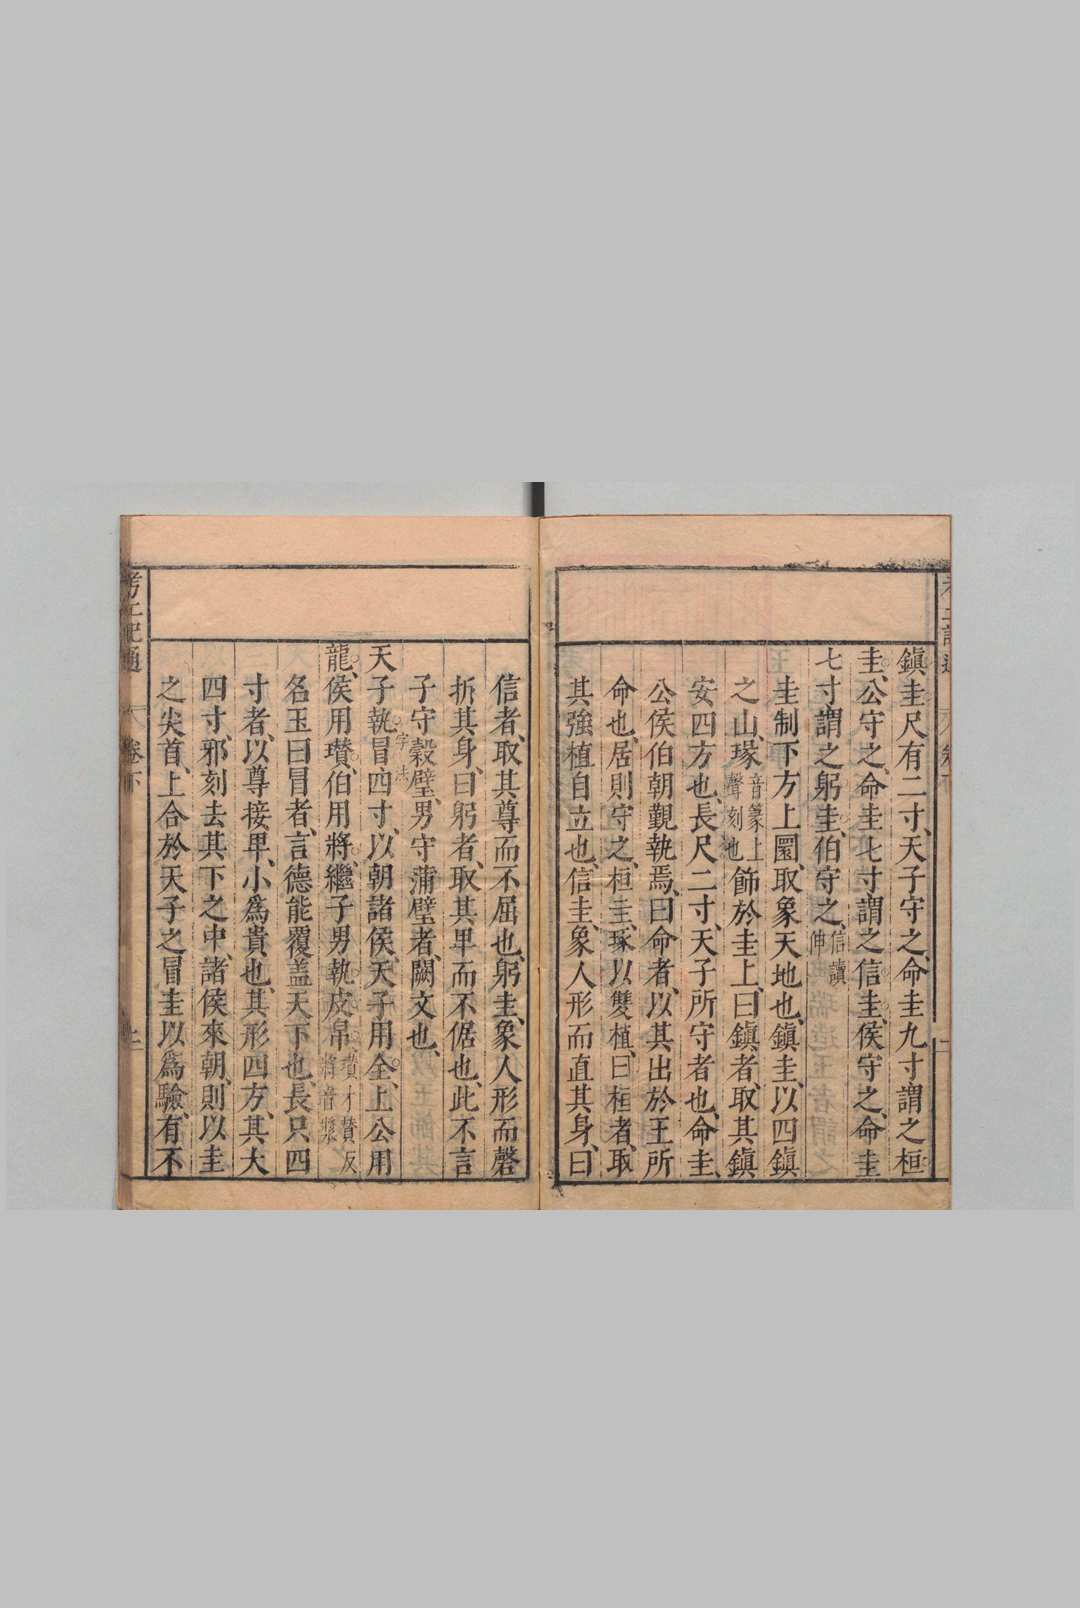 鎮圭尺有二寸、天子守之、命圭九寸謂之桓
圭、公守之、命圭七寸謂之信圭、侯守之、命圭
七寸謂之躬圭、伯守之、信讀伸
圭制下方上圜、取象天地也、鎮圭、以四鎮
之山、瑑音篆上聲刻也飾於圭上、曰鎮者、取其鎮
安四方也、長尺二寸、天子所守者也、命圭、
公侯伯朝覲執焉、曰命者、以其出於王所
命也、居則守之、桓圭、琢以雙植、曰桓者、取
其強植自立也、信圭、象人形而直其身、曰
信者、取其尊而不屈也、躬圭、象人形而磬
折其身、曰躬者、取其卑而不倨也、此不言
子守穀璧、男守蒲璧者、闕文也、
天子執冒四寸、以朝諸侯、天子用全、上公用
龍、侯用瓚、伯用將、繼子男執皮帛、瓚才贊反將音漿
名玉曰冒者、言德能覆盖天下也、長只四
寸者、以尊接卑、小爲貴也、其形四方、其大
四寸、邪刻去其下之中、諸侯來朝、則以圭
之尖首、上合於天子之冒圭以爲驗、有不
考工記通
卷下
字法